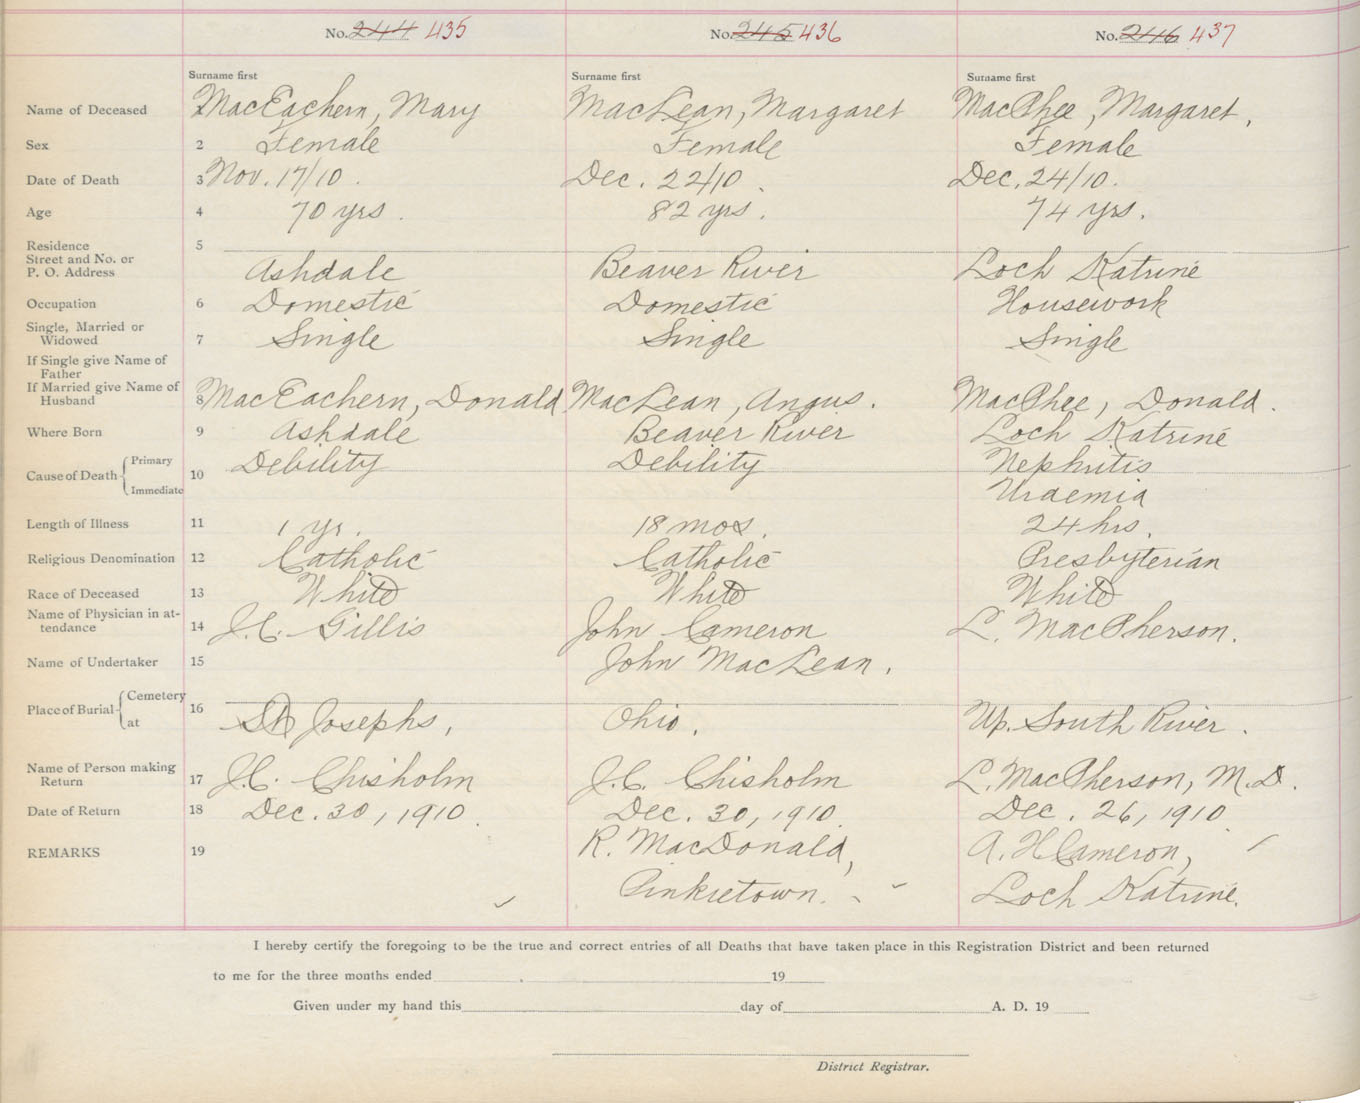 No. 244 435 No. 245 436 No. 246 437
Surname first Surname first Surname first
Name of Deceased 1 MacEachern, Mary MacLean, Margaret MacPhee, Margaret,
Sex 2 Female Female Female
Date of Death 3 Nov. 17/10. Dec. 22/10. Dec. 24/10.
Age 4 70 yrs. 82 yrs. 74 yrs.
Residence 5
Street and No. or
P. O. Address Ashdale Beaver River Loch Katrine
Occupation 6 Domestic Domestic Housework
Single, Married or
Widowed 7 Single Single Single
If Single give Name of
Father
If Married give Name of
Husband 8 MacEachern, Donald MacLean, Angus. MacPhee, Donald.
Where Born 9 Ashdale Beaver River Loch Katrine
Cause of Death Primary 10 Debility Debility Nephritis
Immediate Uraemia
Length of Illness 11 1 yr. 18 mos. 24 hrs.
Religious Denomination 12 Catholic Catholic Presbyterian
Race of Deceased 13 White White White
Name of Physician in at-
tendance 14 J.C. Gillis John Cameron L. MacPherson.
Name of Undertaker 15 John MacLean.
Place of Burial Cemetery 16
at St Josephs, Ohio. Up. South River.
Name of Person making
Return 17 J.C. Chisholm J.C. Chisholm L. MacPherson, M.D.
Date of Return 18 Dec. 30, 1910. Dec. 30, 1910. Dec. 26, 1910
REMARKS 19 R. MacDonald, A. H Cameron,
Pinkietown. Loch Katrine.
I hereby certify the foregoing to be the true and correct entries of all Deaths that have taken place in this Registration District and been returned
to me for the three months ended 19
Given under my hand this day of A. D. 19
District Registrar.